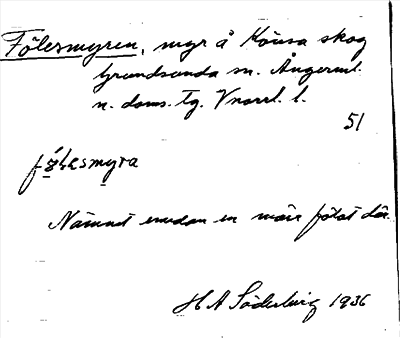 Fölesmyren, myr å Könsa skog
Grundsunda sn. Ångerml.
n. doms. tg. Vnorrl. l.
51
Nämnet emedan en märr fölat där.
H A Söderberg 1936